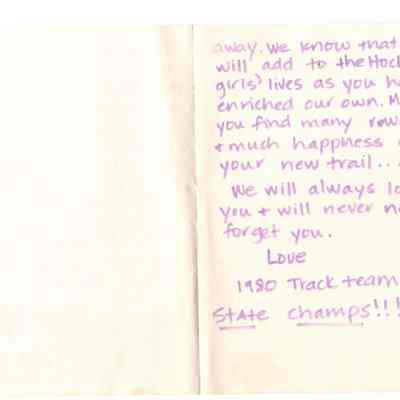 away. We know that
will add to the Hock
girls' lives as you ha
enriched our own. M
you find many rew
+ much happness
your new trail...
We will always lo
you + will never n
forget you.
Love
1980 Track team
STATE champs!!!